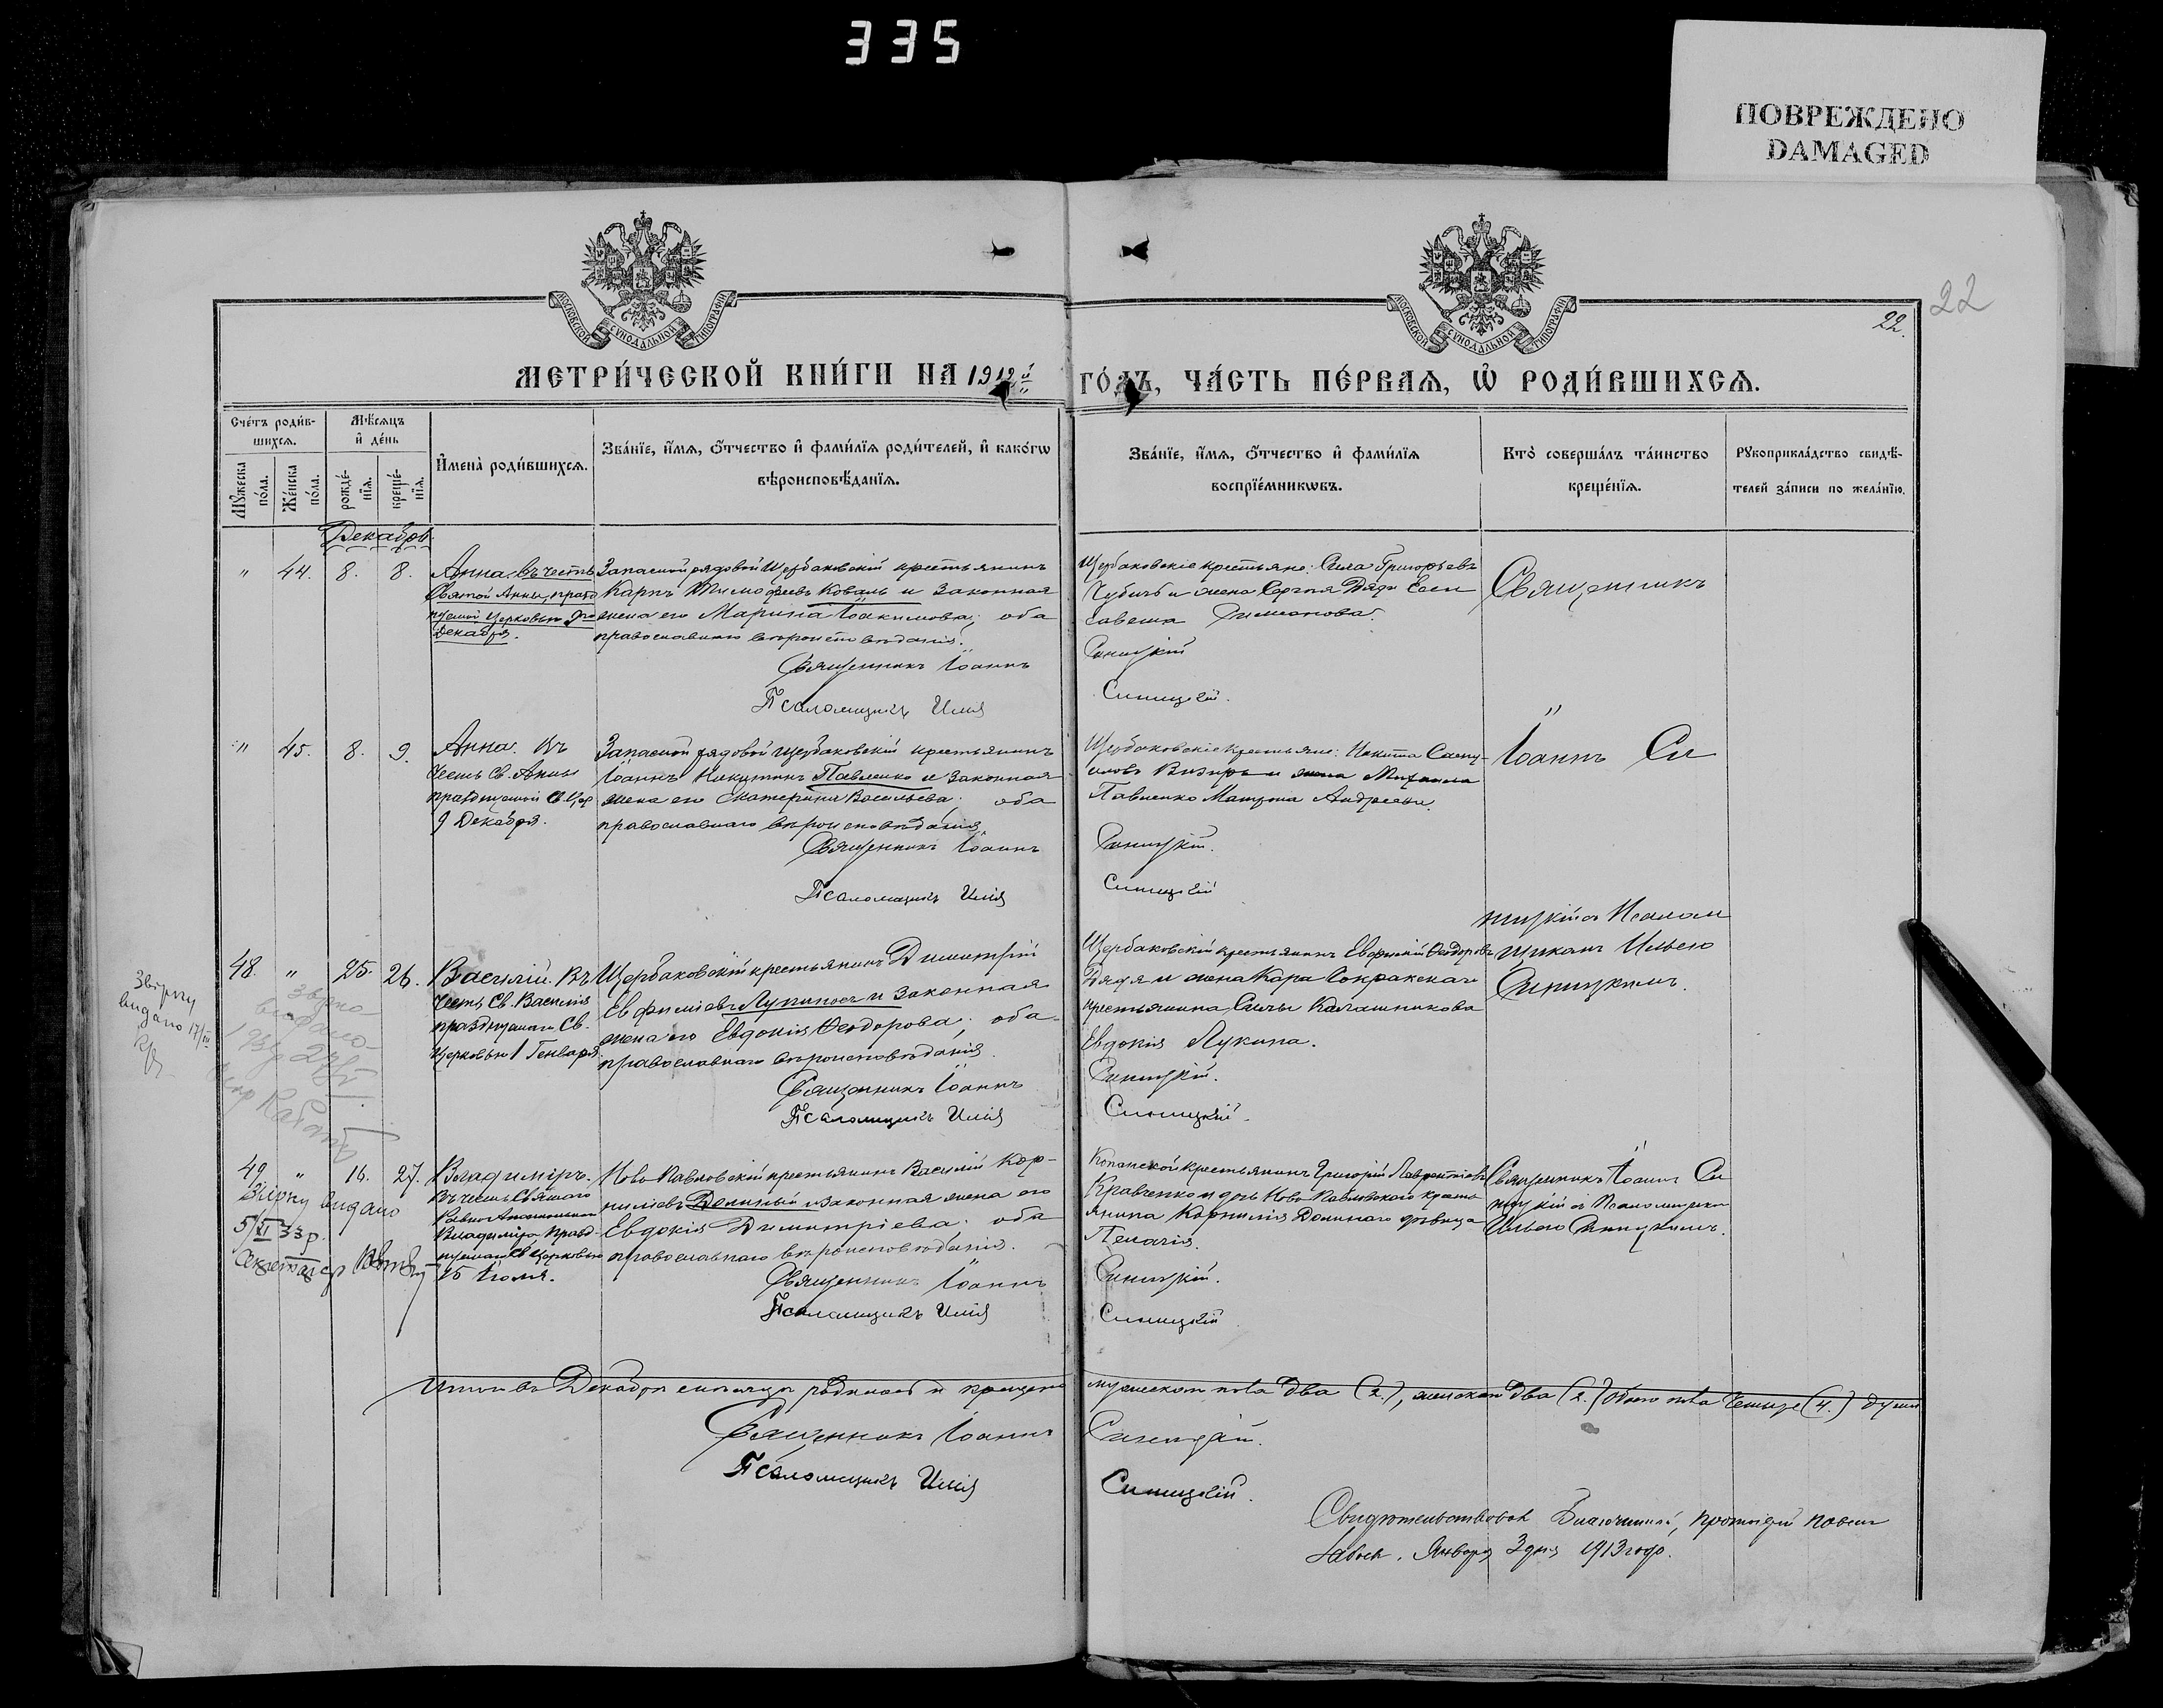 335
ПОВРЕЖДЕНО
DAMAGED
22
22.
МОСКОВСКОЙ СѴНОДАЛЬНОЙ ТИПОГРАФІИ
МОСКОВСКОЙ СѴНОДАЛЬНОЙ ТИПОГРАФІИ
МЕТРИ́ЧЕСКОЙ КНИ́ГИ НА 1912й
ГО́ДЪ, ЧА́СТЬ ПЕ́РВАЯ, Ѡ҆ РОДИ́ВШИХСЯ.
Сче́тъ роди́в-
шихся.
Мѣ́сяцъ
и҆ де́нь
Мꙋ́жеска по́ла.
Же́нска по́ла.
рожде́-
нїя.
креще́-
нїя.
И҆мена̀ роди́вшихся.
Зва́нїе, и҆́мя, ѻ҆́тчество и҆ фами́лїя роди́телей, и҆ како́гѡ
вѣроисповѣ́данїя.
Зва́нїе, и҆́мя, ѻ҆́тчество и҆ фами́лїя
воспрїе́мникѡвъ.
Кто̀ соверша́лъ та́инство
креще́нїя.
Рꙋкоприкла́дство свидѣ́-
телей за́писи по жела́нїю.
Декабрь
" 44. 8. 8.
Анна. въ честь
Святой Анны, празд
нуемой Церковью 9го
Декабря.
Запасной рядовой Щербаковскій крестьянинъ
Карпъ Тимофеевъ Коваль и законная
жена его Марина Іоакимова; оба
православнаго вѣроисповѣданія.
Священникъ Іоаннъ
Псаломщикъ Илія
Щербаковскіе крестьяне: Сила Григорьевъ
Чубичъ и жена Сергея Дядя Ели
савета
Синицкій
Синицкій.
Священникъ
" 45. 8. 9.
Анна. Въ
честь Св. Анны
празднуемой Св. Цер
9 Декабря.
Запасной рядовой Щербаковскій крестьянинъ
Іоаннъ Никитинъ Павленко и законная
жена его Екатерина Васильева; оба
православнаго вѣроисповѣданія.
Священникъ Іоаннъ
Псаломщикъ Илія
Щербаковскіе крестьяне: Никита
Визирь и жена Михаила
Павленко Матрона Андреева.
Синицкій.
Синицкій
Іоаннъ Си
48. " 25. 26.
Василій. Въ
честь Св. Василія
празднуемаго Св.
Церковью 1 Генваря
Щербаковскій крестьянинъ Димитрій
Евфиміевъ Лупиносъ и законная
жена его Евдокія Ѳеодорова; оба
православнаго вѣроисповѣданія.
Священникъ Іоаннъ
Псаломщикъ Илія
Щербаковскій крестьянинъ Евфимій Ѳеодоровъ
Дядя и жена
крестьянина Силы Калашникова
Евдокія Лукина.
Синицкій.
Синицкій.
ницкій съ Псалом
щикомъ Ильею
Синицкимъ.
видано 17/III
видано
49. " 16. 27.
Владиміръ.
Въ честь Святаго
Равно Апостольнаго
Владиміра празд-
нуемаго Св Церковью
15 Іюля.
Ново Павловскій крестьянинъ Василій Кор-
ниліевъ Долиный и законная жена его
Евдокія Димитріева; оба
православнаго вѣроисповѣданія.
Священникъ Іоаннъ
Псаломщикъ Илія
Копанской крестьянинъ Григорій Лаврентіевъ
Кравченко и дочь Ново Павловскаго кресть
янина Корнилія Долинаго дѣвица
Пелагія.
Синицкій.
Синицкій
Священникъ Іоаннъ Си
ницкій съ Псаломщикомъ
Ильею Синицкимъ.
видано
5/XI 33 р.
Итого въ Декабрѣ мѣсяцѣ родилось и крещено
мужескаго пола два (2.), женскаго два (2.) обоего пола четыре (4.) души
Священникъ Іоаннъ
Синицкій.
Псаломщикъ Илія
Синицкій.
Свидѣтельствовалъ Благочинный, протоіерей
Января 3 дня 1913 года.